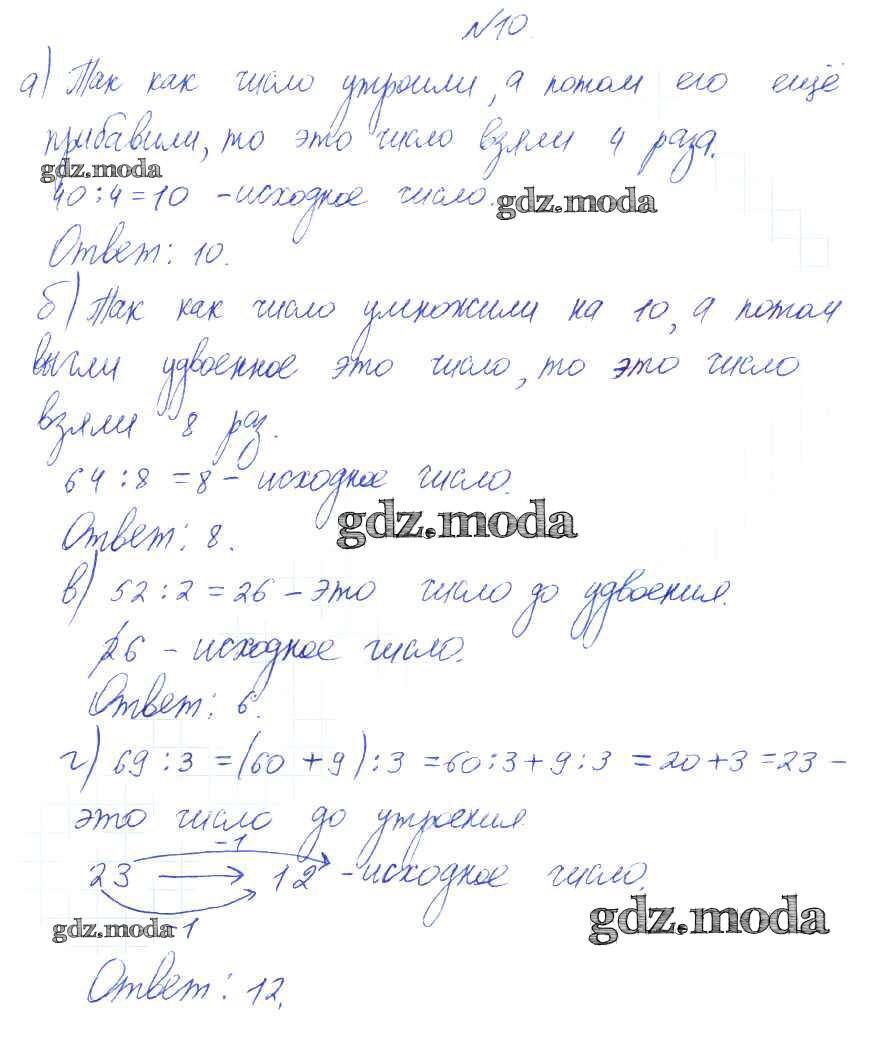 №10.
а) Так как число утроили, а потом его ещё
прибавили, то это число взяли 4 раза.
gdz.moda
40 : 4 = 10 – исходное число.
gdz.moda
Ответ: 10.
б) Так как число умножили на 10, а потом
вычли удвоенное это число, то это число
взяли 8 раз.
64 : 8 = 8 – исходное число.
gdz.moda
Ответ: 8.
в) 52 : 2 = 26 – это число до удвоения.
26 – исходное число.
Ответ: 6.
г) 69 : 3 = (60 + 9) : 3 = 60 : 3 + 9 : 3 = 20 + 3 = 23 –
это число до утроения.
-1
23 → 12 – исходное число.
gdz.moda
gdz.moda
-1
Ответ: 12.